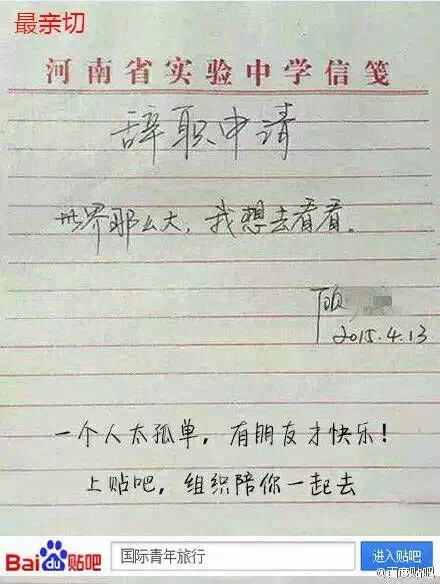 最亲切
河南省实验中学信笺
辞职申请
世界那么大，我想去看看。
顾
2015.4.13
一个人太孤单，有朋友才快乐！
上贴吧，组织陪你一起去
Bai du 贴吧
国际青年旅行
进入贴吧
@百度贴吧